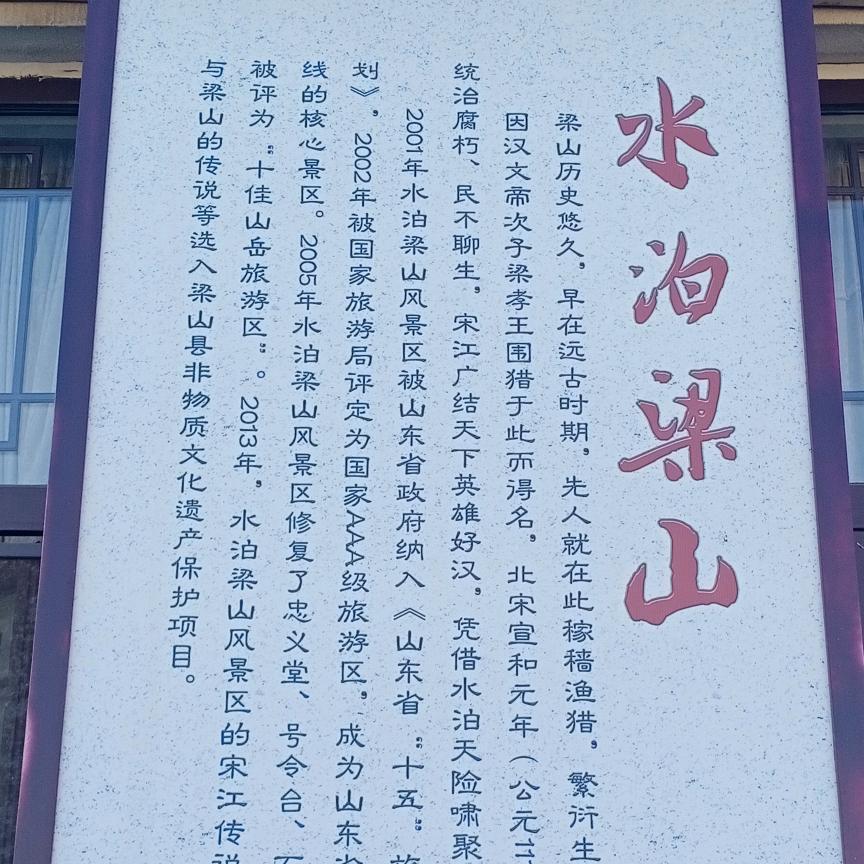 水泊梁山
梁山历史悠久，早在远古时期，先人就在此稼穑渔猎，繁衍生
因汉文帝次子梁孝王围猎于此而得名。北宋宣和元年（公元11
统治腐朽、民不聊生，宋江广结天下英雄好汉，凭借水泊天险啸聚
2001年水泊梁山风景区被山东省政府纳入《山东省“十五”旅
划》，2002年被国家旅游局评定为国家AAA级旅游区，成为山东省
线的核心景区。2005年水泊梁山风景区修复了忠义堂、号令台、石
被评为“十佳山岳旅游区”。2013年，水泊梁山风景区的宋江传说
与梁山的传说等选入梁山县非物质文化遗产保护项目。